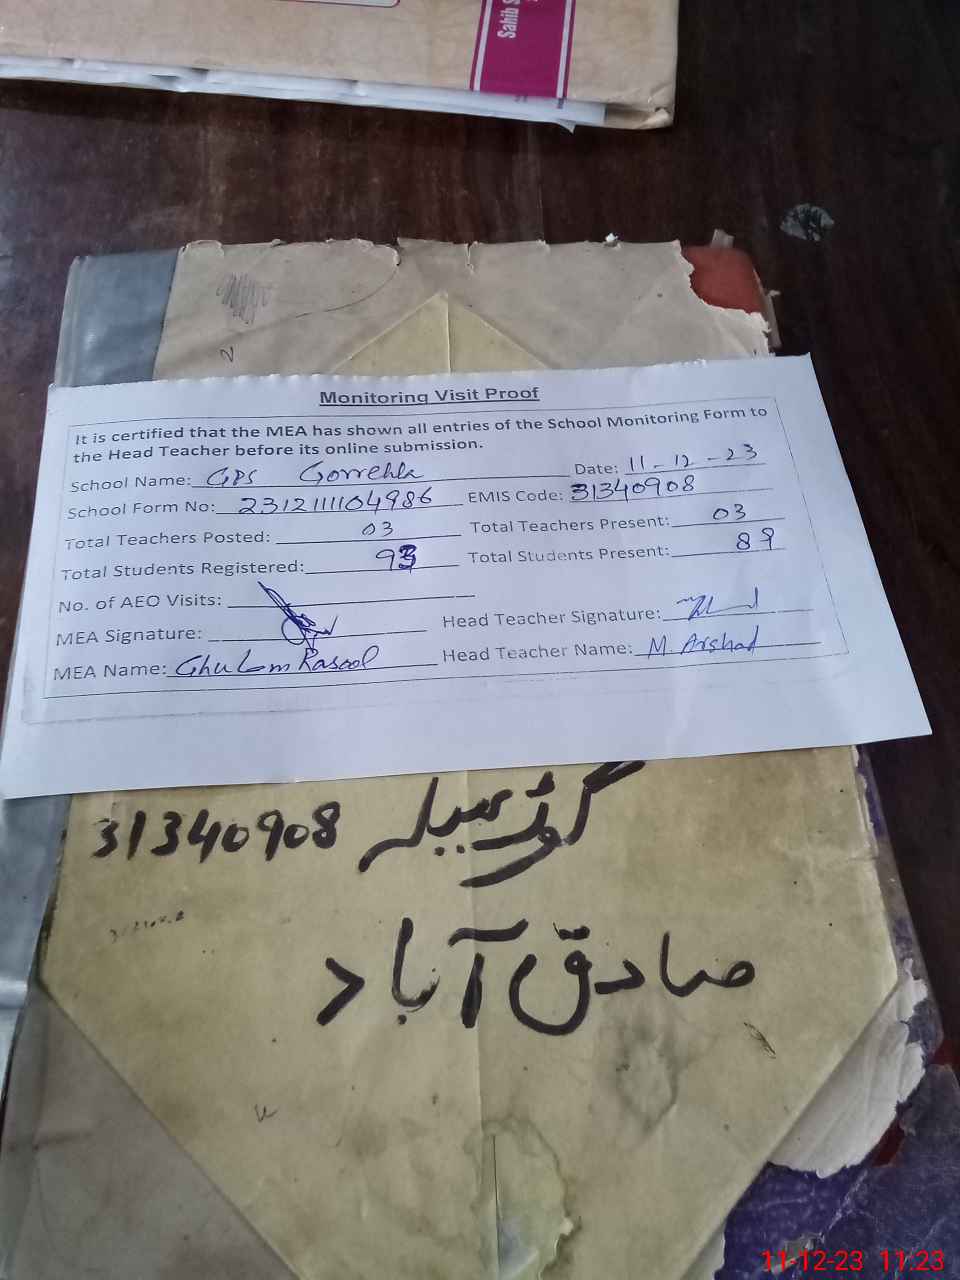 Sahib S
Monitoring Visit Proof
It is certified that the MEA has shown all entries of the School Monitoring Form to
the Head Teacher before its online submission.
School Name: GPS Gorrehla Date: 11-12-23
School Form No: 2312111104986 EMIS Code: 31340908
Total Teachers Posted: 03 Total Teachers Present: 03
Total Students Registered: 93 Total Students Present: 89
No. of AEO Visits:
MEA Signature: Head Teacher Signature:
MEA Name: Ghulam Rasool Head Teacher Name: M. Arshad
31340908
صادق آباد
11-12-23 11:23